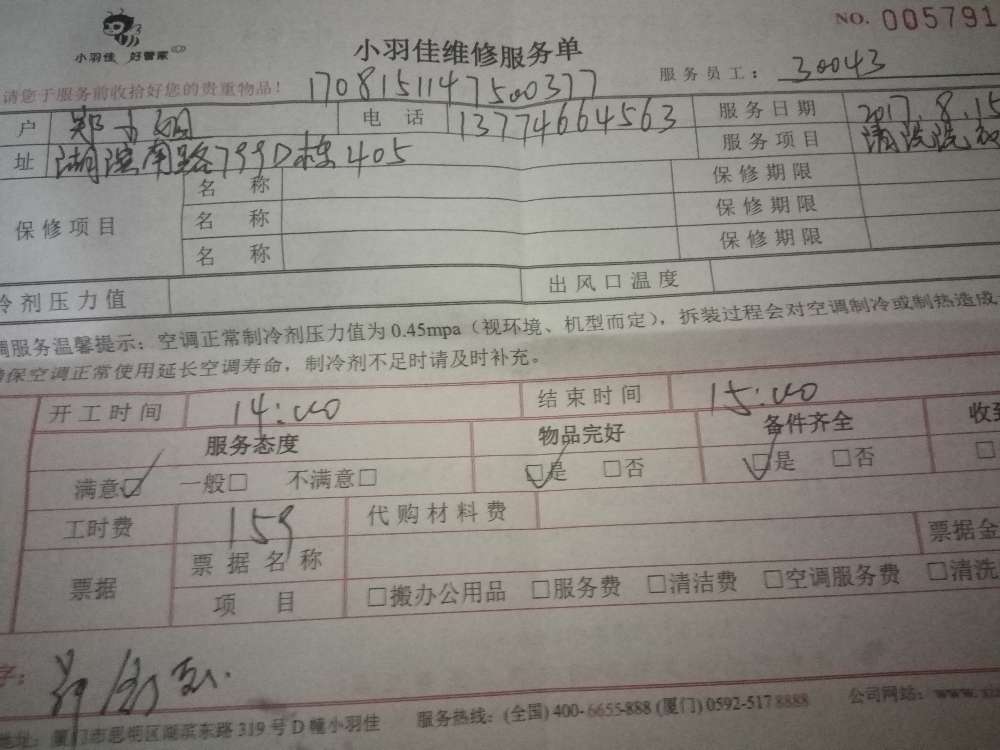 NO. 005791
小羽佳 好管家
小羽佳维修服务单
请您于服务前收拾好您的贵重物品！
1708151147500377
服务员工： 30043
户 郑
电 话 13774664563
服务日期 2017.8.15
址 湖滨南路799D栋405
服务项目 清洗洗
保修项目
名 称
保修期限
名 称
保修期限
名 称
保修期限
冷剂压力值
出风口温度
调服务温馨提示：空调正常制冷剂压力值为0.45mpa（视环境、机型而定），拆装过程会对空调制冷或制热造成
保空调正常使用延长空调寿命，制冷剂不足时请及时补充。
开工时间 14:00
结束时间 15:00
服务态度
物品完好
备件齐全
收到
满意☑ 一般□ 不满意□
☑是 □否
☑是 □否
□
工时费 159
代购材料费
票据
票据名称
票据金
项 目
□搬办公用品 □服务费 □清洁费 □空调服务费 □清洗
字：
地址：厦门市思明区湖滨东路319号D幢小羽佳
服务热线：(全国) 400-6655-888 (厦门) 0592-5178888
公司网站：www.xi